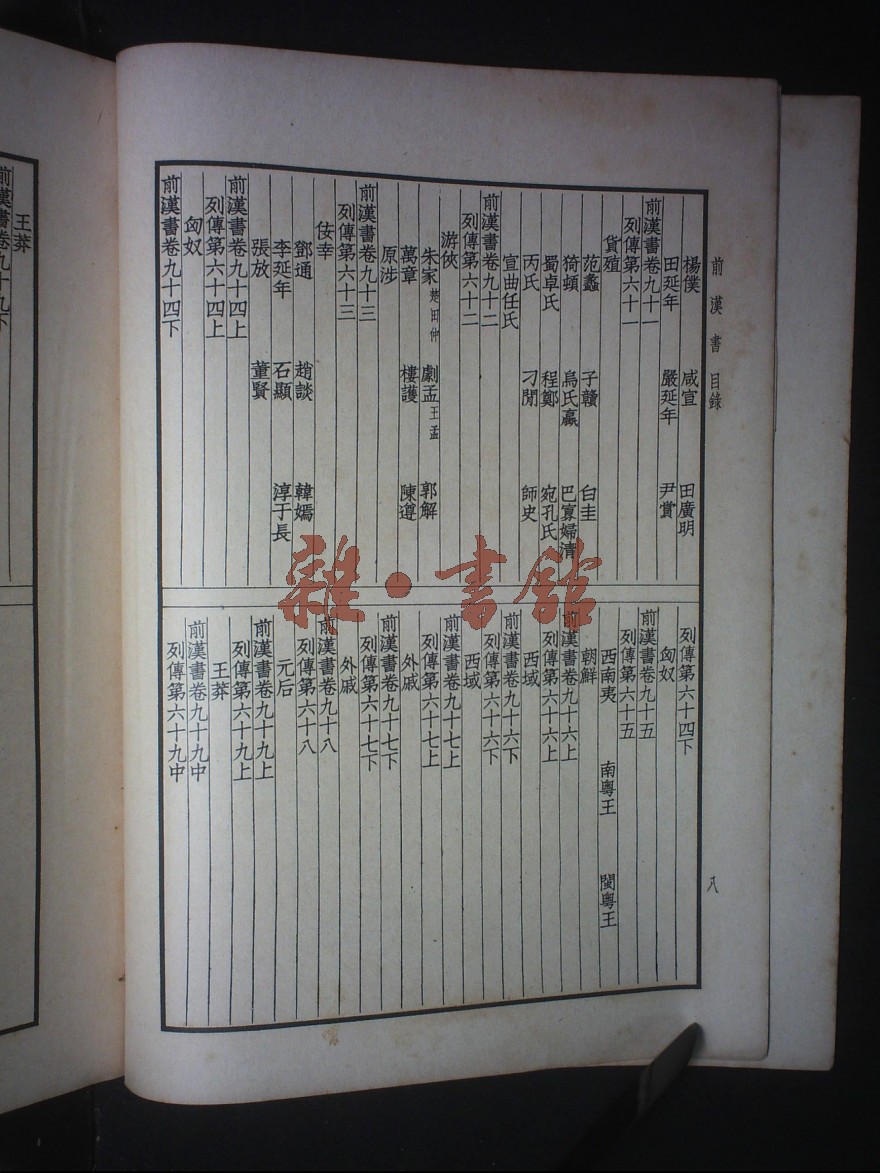 前漢書 目錄
八
楊僕 咸宣 田廣明
田延年 嚴延年 尹賞
前漢書卷九十一
列傳第六十一
貨殖
范蠡 子贛 白圭
猗頓 烏氏蠃 巴寡婦清
蜀卓氏 程鄭 宛孔氏
丙氏 刁閒 師史
宣曲任氏
前漢書卷九十二
列傳第六十二
游俠
朱家 楚田仲 劇孟 王孟 郭解
萬章 樓護 陳遵
原涉
前漢書卷九十三
列傳第六十三
佞幸
鄧通 趙談 韓嫣
李延年 石顯 淳于長
張放 董賢
前漢書卷九十四上
列傳第六十四上
匈奴
前漢書卷九十四下
列傳第六十四下
匈奴
前漢書卷九十五
列傳第六十五
西南夷 南粵王 閩粵王
朝鮮
前漢書卷九十六上
列傳第六十六上
西域
前漢書卷九十六下
列傳第六十六下
西域
前漢書卷九十七上
列傳第六十七上
外戚
前漢書卷九十七下
列傳第六十七下
外戚
前漢書卷九十八
列傳第六十八
元后
前漢書卷九十九上
列傳第六十九上
王莽
前漢書卷九十九中
列傳第六十九中
王莽
前漢書卷九十九下
雜·書館